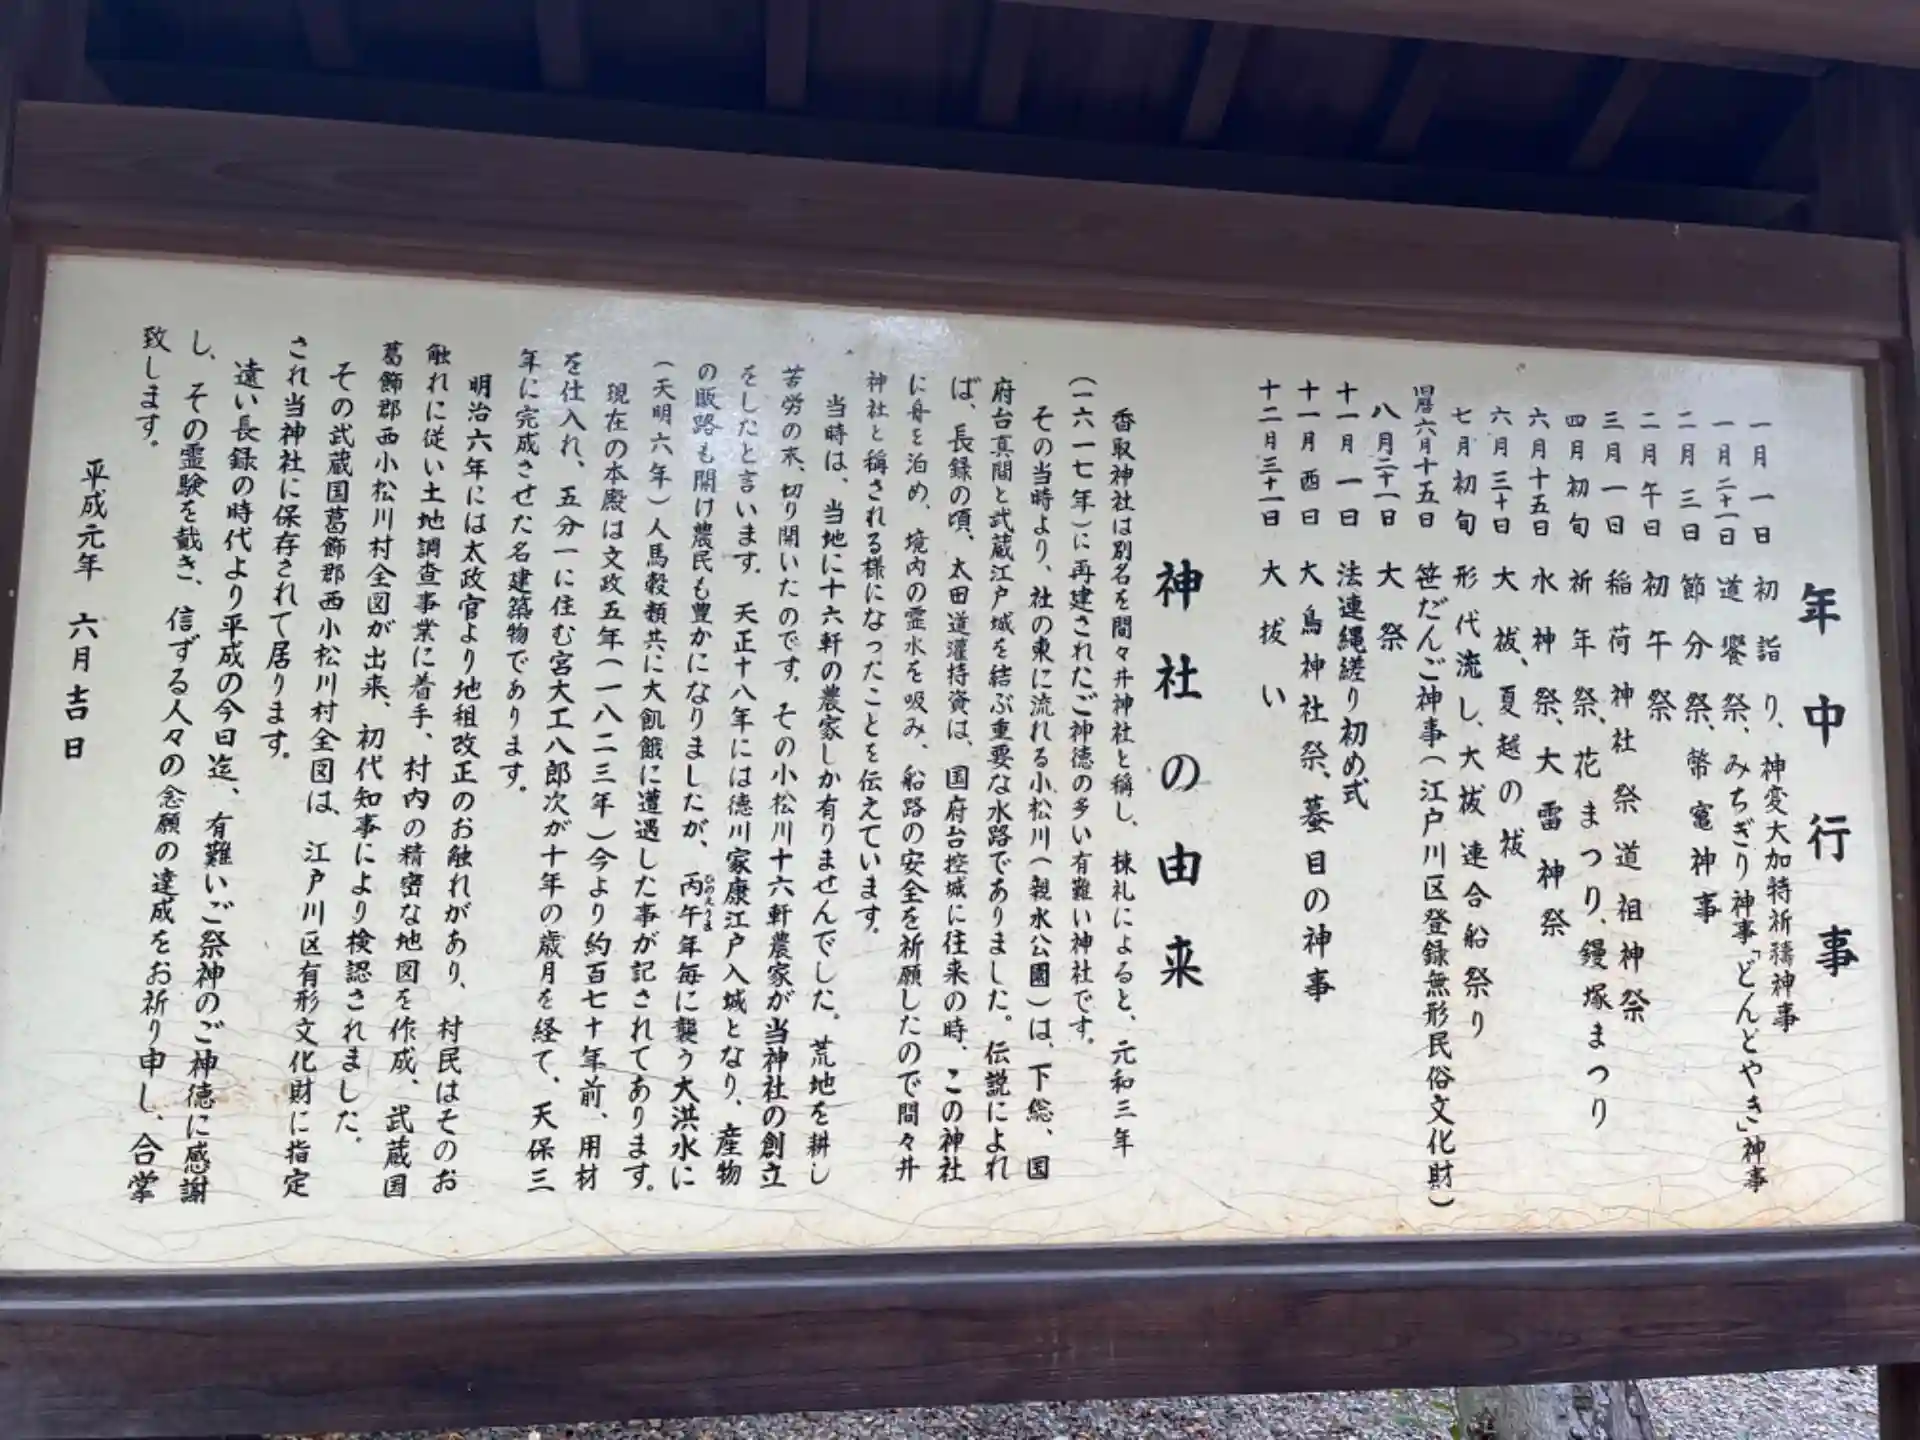 年中行事
一月一日 初詣り、神変大加特祈祷神事
一月二十一日 道饗祭、みちぎり神事「どんどやき」神事
二月三日 節分祭、幣竃神事
二月午日 初午祭
三月一日 稲荷神社祭道祖神祭
四月初旬 祈年祭、花まつり、鏝塚まつり
六月十五日 水神祭、大雷神祭
六月三十日 大祓、夏越の祓
七月初旬 形代流し、大祓連合船祭り
旧暦六月十五日 笹だんご神事(江戸川区登録無形民俗文化財)
八月二十一日 大祭
十一月一日 法連縄縒り初め式
十一月酉日 大鳥神社祭、蟇目の神事
十二月三十一日 大祓い
神社の由来
香取神社は別名を間々井神社と稱し、棟礼によると、元和三年
(一六一七年)に再建されたご神徳の多い有難い神社です。
その当時より、社の東に流れる小松川(親水公園)は、下総、国
府台真間と武蔵江戸城を結ぶ重要な水路でありました。伝説によれ
ば、長録の頃、太田道灌持資は、国府台控城に往来の時、この神社
に舟を泊め、境内の霊水を吸み、船路の安全を祈願したので間々井
神社と稱される様になったことを伝えています。
当時は、当地に十六軒の農家しか有りませんでした。荒地を耕し
苦労の末、切り開いたのです。その小松川十六軒農家が当神社の創立
をしたと言います。天正十八年には徳川家康江戸入城となり、産物
の販路も開け農民も豊かになりましたが、丙午年毎に襲う大洪水に
ひのえうま
(天明六年)人馬穀類共に大飢餓に遭遇した事が記されてあります。
現在の本殿は文政五年(一八二三年)今より約百七十年前、用材
を仕入れ、五分一に住む宮大工八郎次が十年の歳月を経て、天保三
年に完成させた名建築物であります。
明治六年には太政官より地租改正のお触れがあり、村民はそのお
触れに従い土地調査事業に着手、村内の精密な地図を作成、武蔵国
葛飾郡西小松川村全図が出来、初代知事により検認されました。
その武蔵国葛飾郡西小松川村全図は、江戸川区有形文化財に指定
され当神社に保存されて居ります。
遠い長録の時代より平成の今日迄、有難いご祭神のご神徳に感謝
し、その霊験を戴き、信ずる人々の念願の達成をお祈り申し、合掌
致します。
平成元年 六月吉日